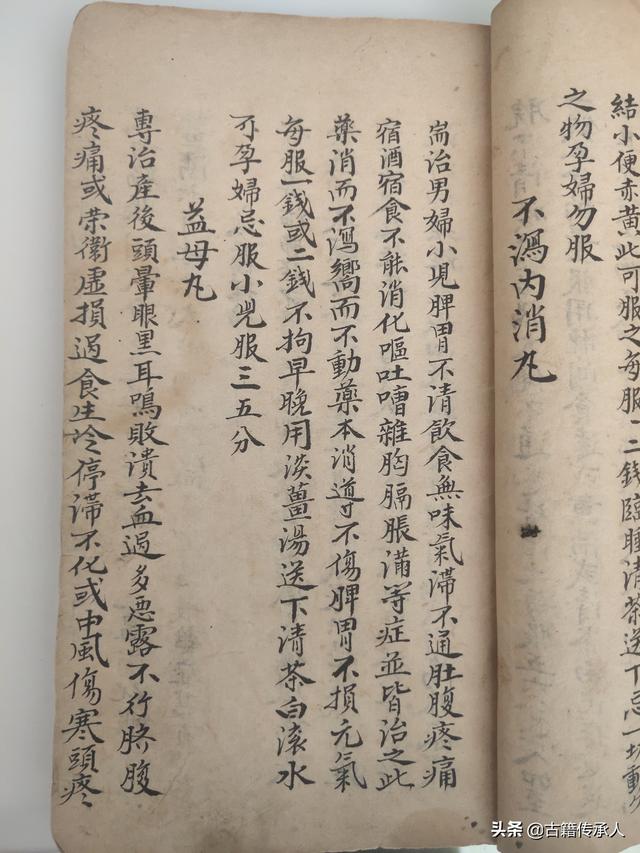 結小便赤黃此可服之每服一二錢臨睡清茶送下忌一切動
之物孕婦勿服
不瀉內消丸
耑治男婦小児脾胃不清飲食無味氣滯不通肚腹疼痛
宿酒宿食不能消化嘔吐嘈雜胸膈脹滿等症並皆治之此
藥消而不瀉嚮而不動藥本消導不傷脾胃不損元氣
每服一錢或二錢不拘早晚用淡薑湯送下清茶白滾水
不孕婦忌服小児服三五分
益母丸
專治產後頭暈眼黑耳鳴敗潰去血過多悪露不行臍腹
疼痛或荣衛虛損過食生冷停滯不化或中風傷寒頭疼
头条 @古籍传承人